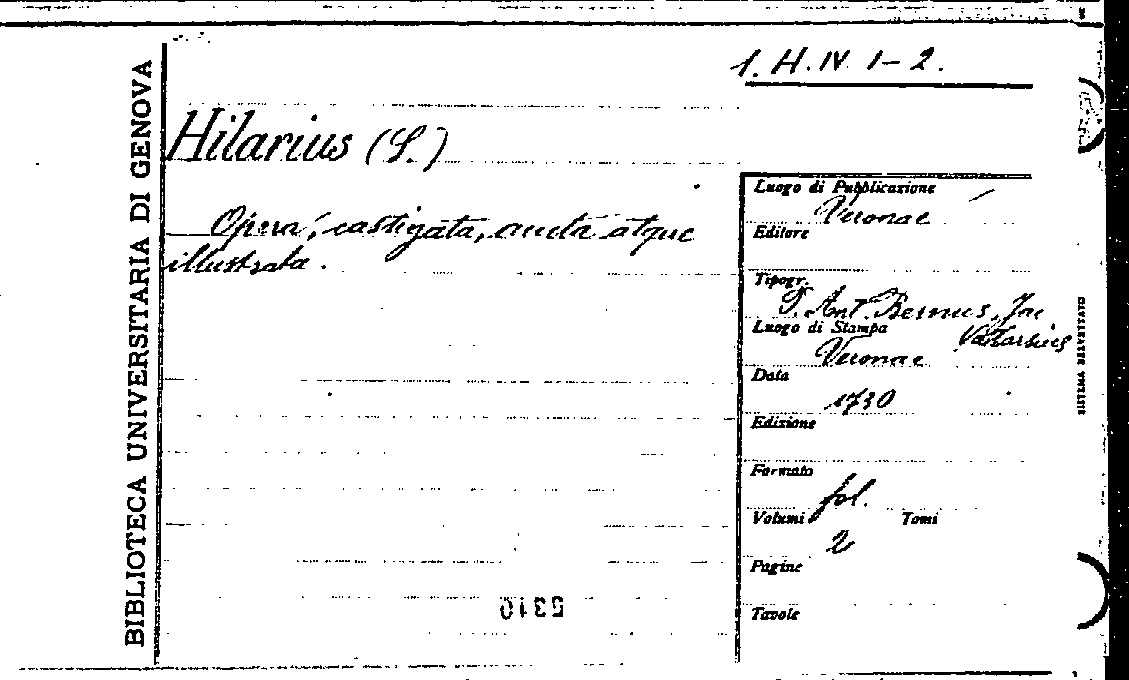 1. H. IV. 1-2.
BIBLIOTECA UNIVERSITARIA DI GENOVA
Hilarius (S.)
Opera, castigata, aucta atque
illustrata.
Luogo di Pubblicazione
Veronae
Editore
Tipogr.
P. Ant. Bernus, Jac
Vallarsius
Luogo di Stampa
Veronae
Data
1730
Edizione
Formato
fol.
Volumi
Tomi
2
Pagine
Tavole
SISTEMA BELVETTATO
5310